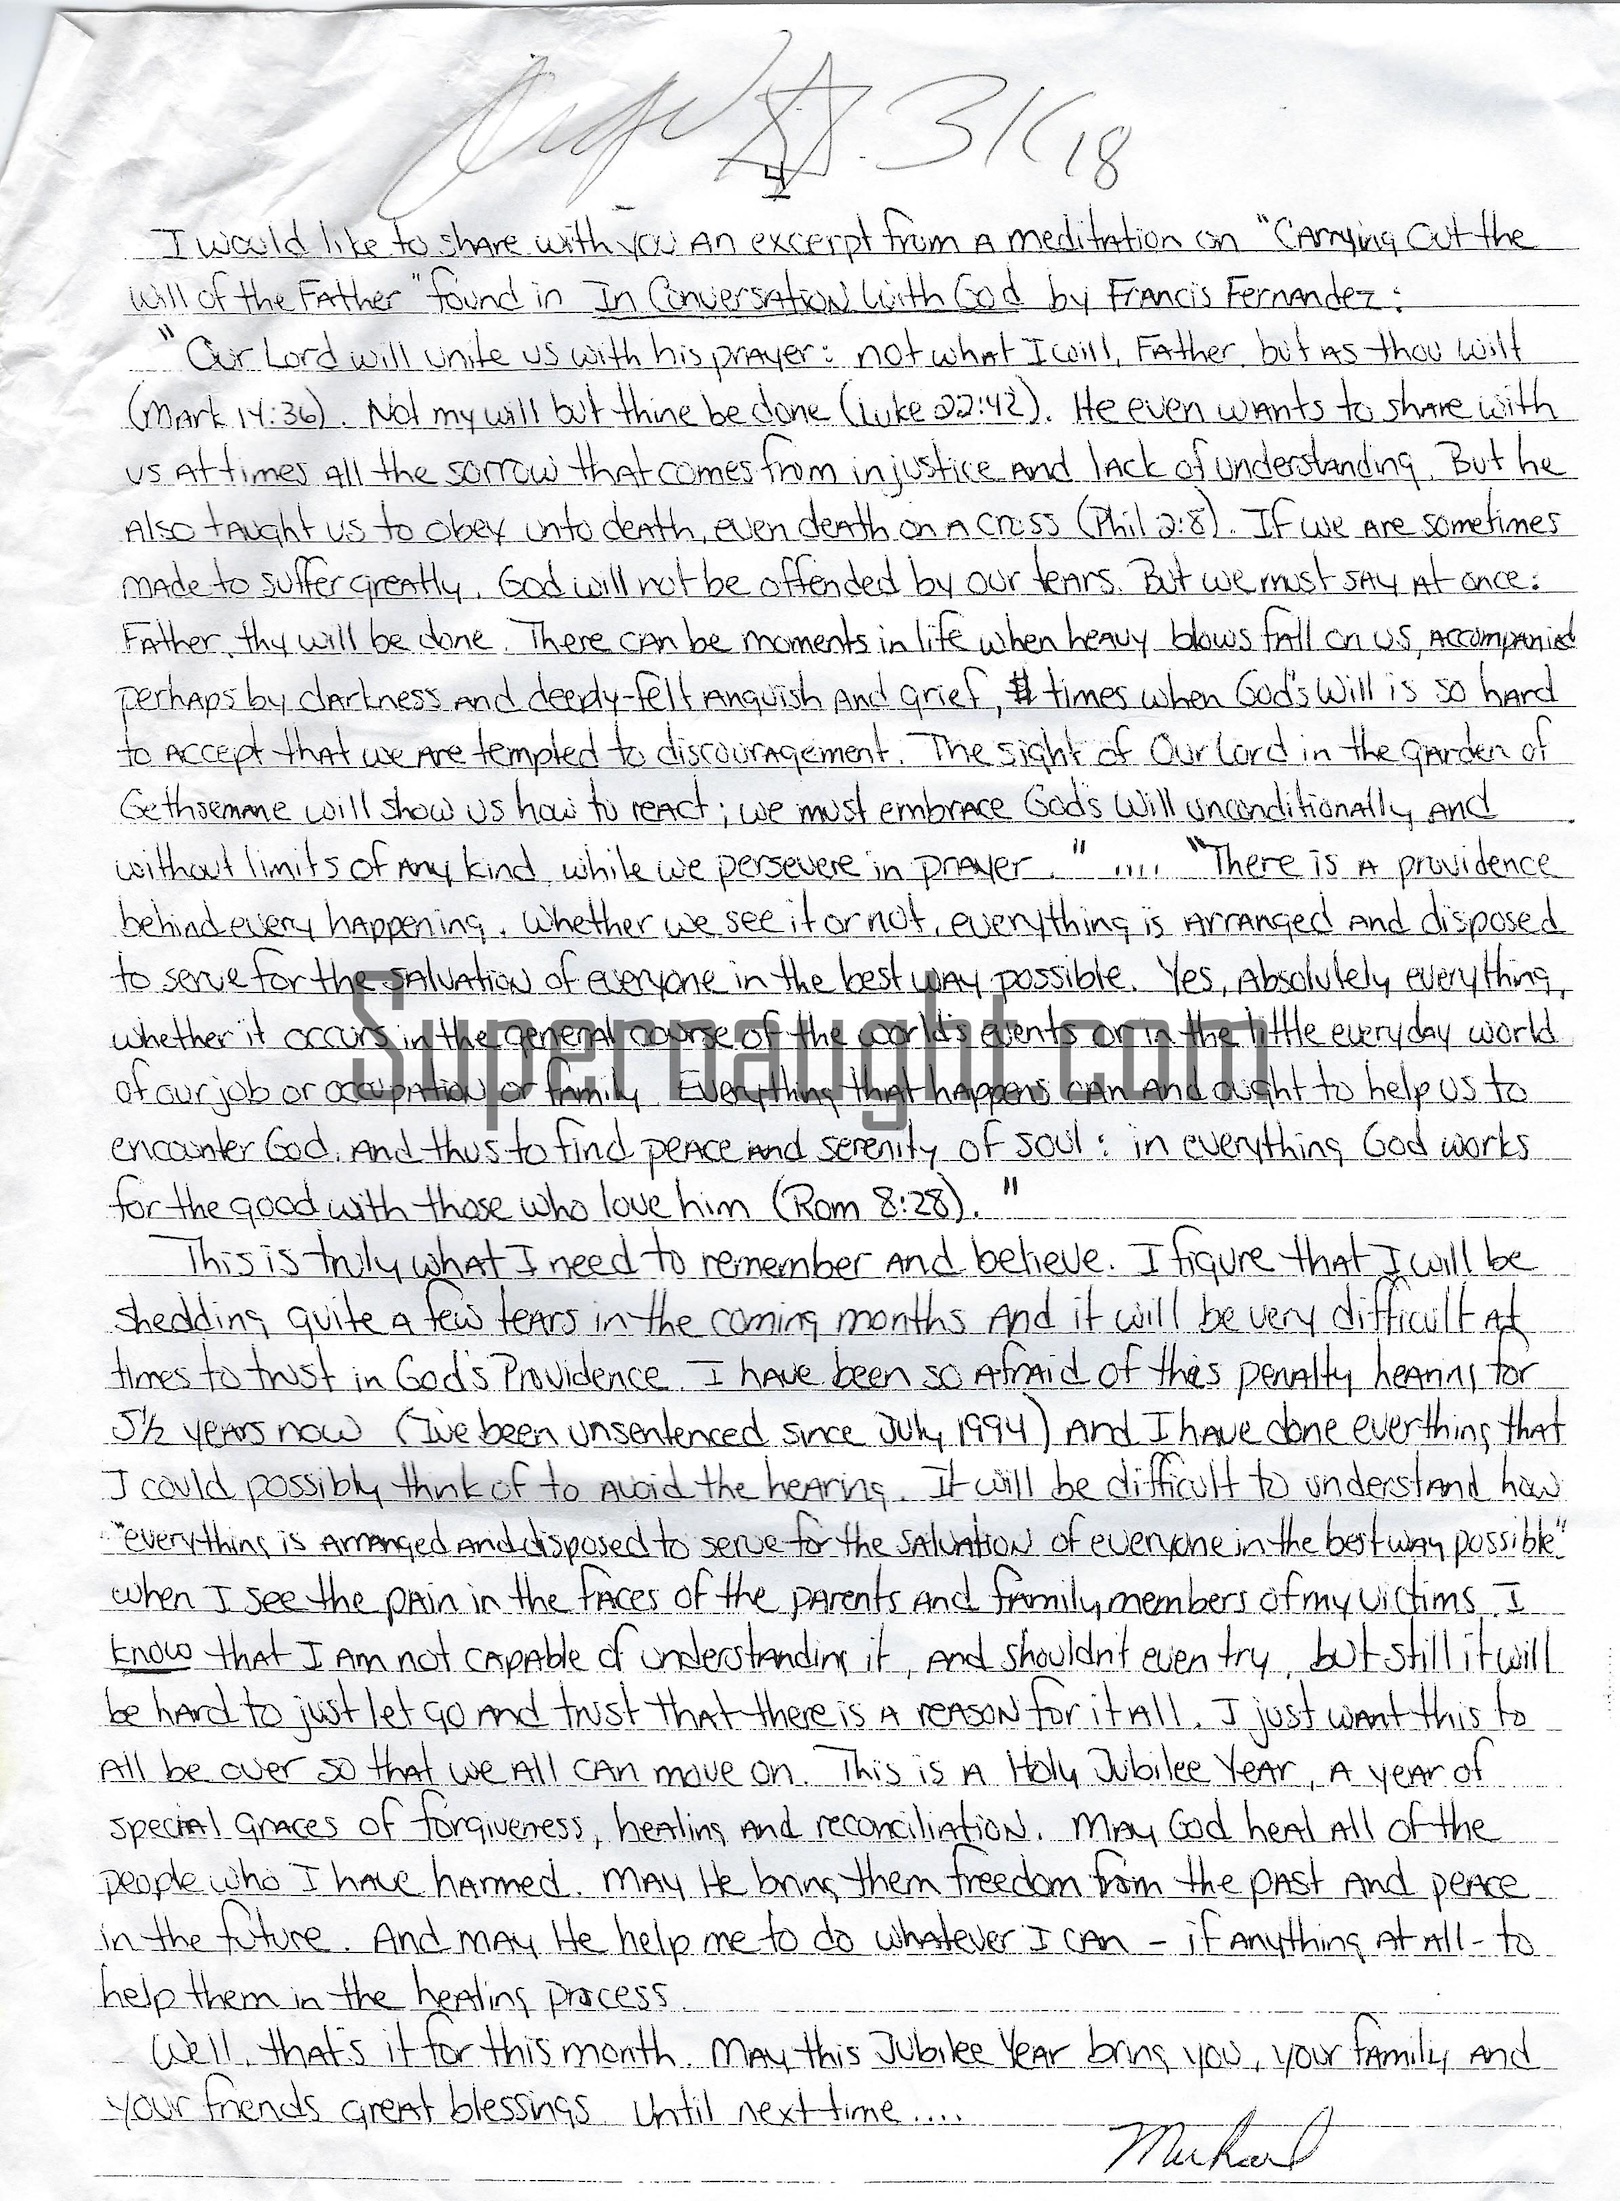 3/1/18
4
I would like to share with you an excerpt from a meditation on "Carrying Out the
Will of the Father" found in In Conversation With God by Francis Fernandez:
"Our Lord will unite us with his prayer: not what I will, Father, but as thou wilt
(Mark 14:36). Not my will but thine be done (Luke 22:42). He even wants to share with
us at times all the sorrow that comes from injustice and lack of understanding. But he
also taught us to obey unto death, even death on a cross (Phil 2:8). If we are sometimes
made to suffer greatly, God will not be offended by our tears. But we must say at once:
Father, thy will be done. There can be moments in life when heavy blows fall on us, accompanied
perhaps by darkness and deeply-felt anguish and grief, times when God's Will is so hard
to accept that we are tempted to discouragement. The sight of Our Lord in the garden of
Gethsemane will show us how to react; we must embrace God's Will unconditionally, and
without limits of any kind, while we persevere in prayer." .... "There is a providence
behind every happening. Whether we see it or not, everything is arranged and disposed
to serve for the salvation of everyone in the best way possible. Yes, absolutely everything,
whether it occurs in the general course of the world's events or in the little everyday world
Supernaught.com
of our job or occupation or family. Everything that happens can and ought to help us to
encounter God, and thus to find peace and serenity of soul: in everything God works
for the good with those who love him (Rom 8:28)."
This is truly what I need to remember and believe. I figure that I will be
shedding quite a few tears in the coming months and it will be very difficult at
times to trust in God's Providence. I have been so afraid of this penalty hearing for
5½ years now (I've been unsentenced since July, 1994) and I have done everthing that
I could possibly think of to avoid the hearing. It will be difficult to understand how
"everything is arranged and disposed to serve for the salvation of everyone in the best way possible"
when I see the pain in the faces of the parents and family members of my victims. I
know that I am not capable of understanding it, and shouldn't even try, but still it will
be hard to just let go and trust that there is a reason for it all. I just want this to
all be over so that we all can move on. This is a Holy Jubilee Year, a year of
special graces of forgiveness, healing and reconciliation. May God heal all of the
people who I have harmed. May He bring them freedom from the past and peace
in the future. And may He help me to do whatever I can - if anything at all - to
help them in the healing process.
Well, that's it for this month. May this Jubilee Year bring you, your family and
your friends great blessings. Until next time....
Michael